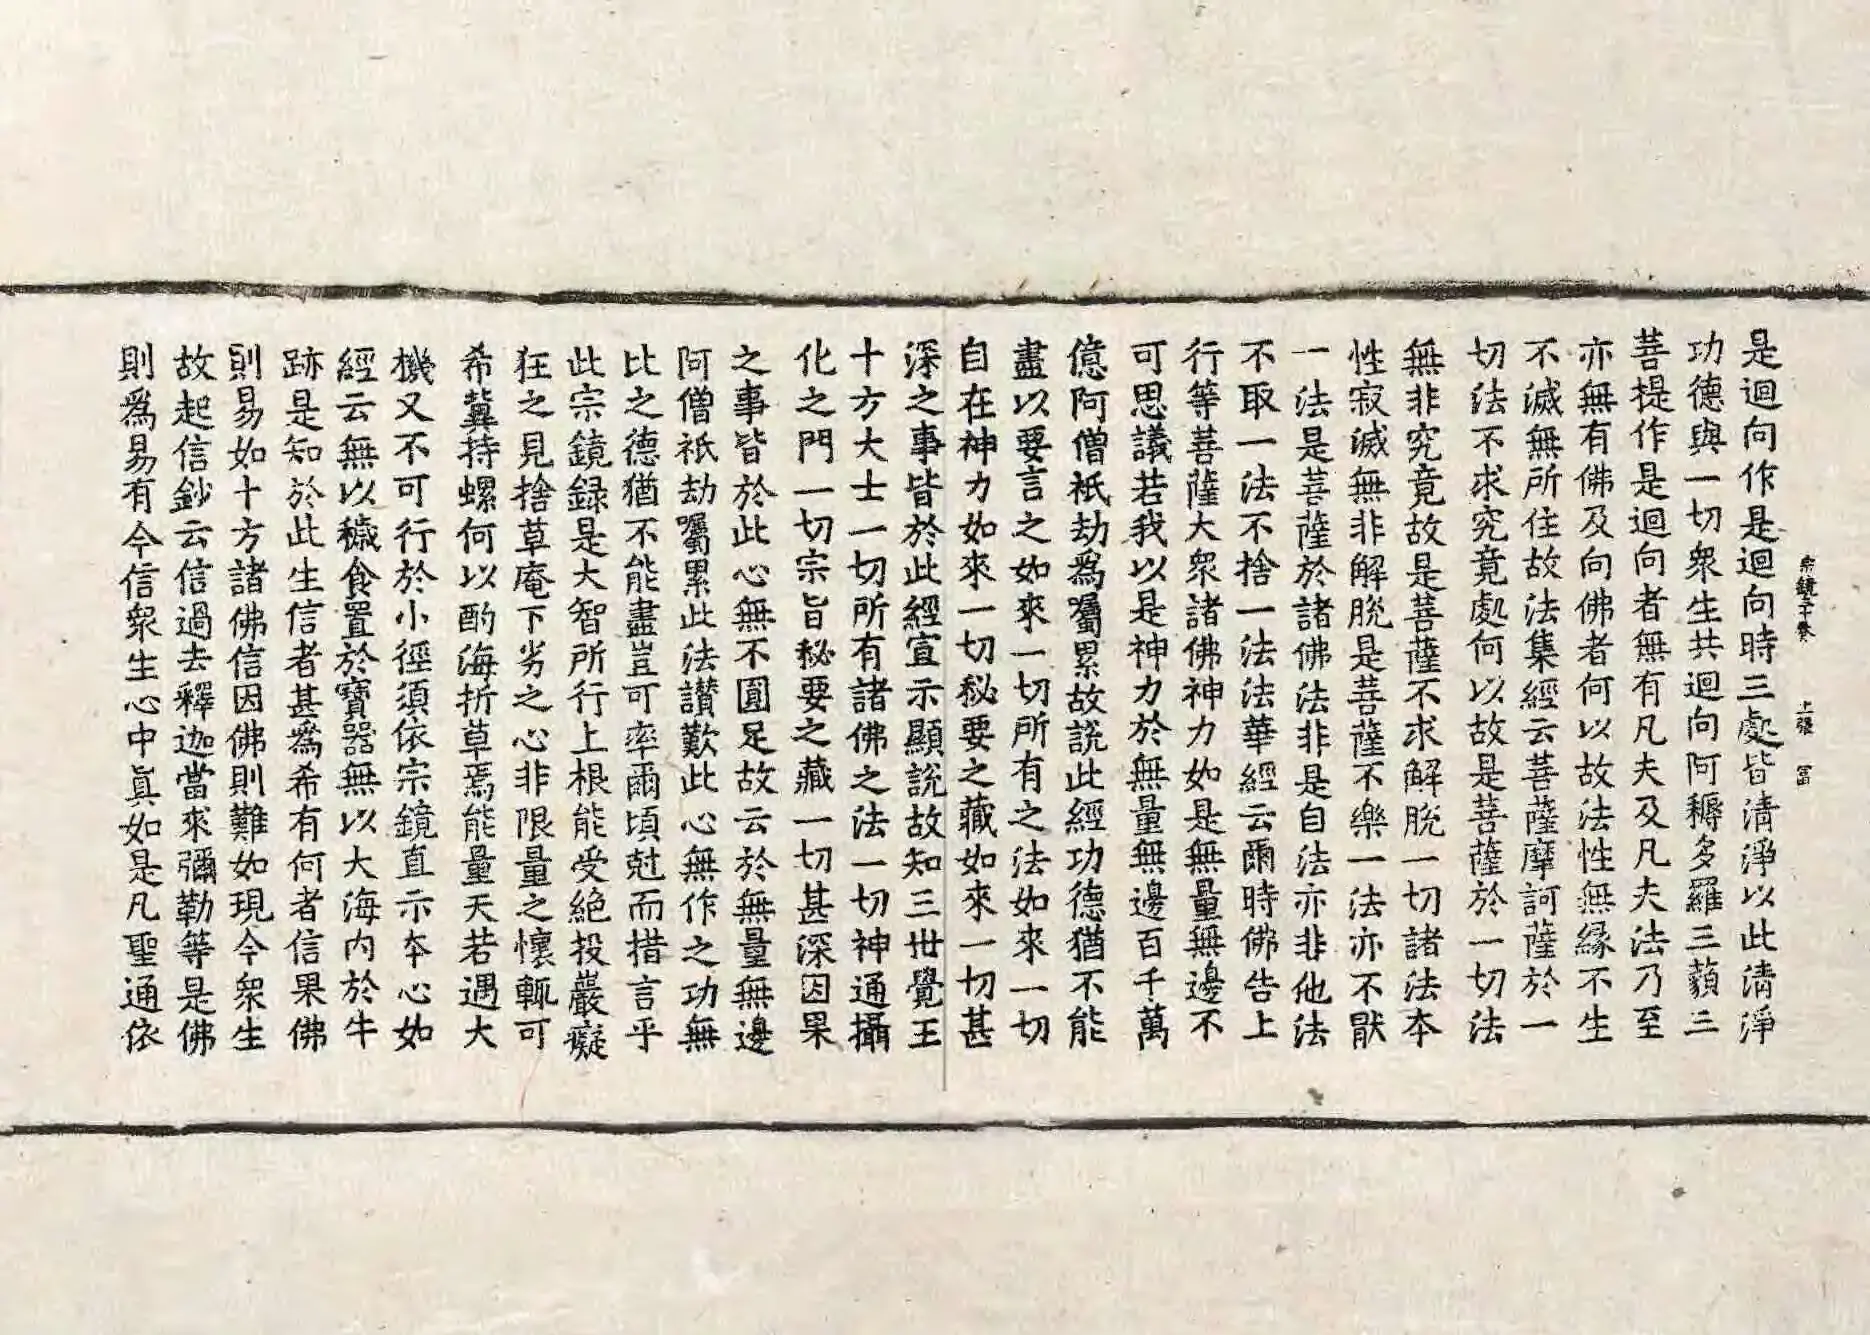 是迴向作是迴向時三處皆清淨以此清淨
功德與一切衆生共迴向阿耨多羅三藐三
菩提作是迴向者無有凡夫及凡夫法乃至
亦無有佛及向佛者何以故法性無緣不生
不滅無所住故法集經云菩薩摩訶薩於一
切法不求究竟處何以故是菩薩於一切法
無非究竟故是菩薩不求解脫一切諸法本
性寂滅無非解脫是菩薩不樂一法亦不猒
一法是菩薩於諸佛法非是自法亦非他法
不取一法不捨一法法華經云爾時佛告上
行等菩薩大衆諸佛神力如是無量無邊不
可思議若我以是神力於無量無邊百千萬
億阿僧祇劫爲囑累故說此經功德猶不能
盡以要言之如來一切所有之法如來一切
自在神力如來一切秘要之藏如來一切甚
深之事皆於此經宣示顯說故知三世覺王
十方大士一切所有諸佛之法一切神通攝
化之門一切宗旨秘要之藏一切甚深因果
之事皆於此心無不圓足故云於無量無邊
阿僧祇劫囑累此法讃歎此心無作之功無
比之德猶不能盡豈可率爾頃尅而措言乎
此宗鏡録是大智所行上根能受絶投嚴癡
狂之見捨草庵下劣之心非限量之懷輒可
希冀持螺何以酌海折草焉能量天若遇大
機又不可行於小徑須依宗鏡直示本心如
經云無以穢食置於寶器無以大海內於牛
跡是知於此生信者甚爲希有何者信果佛
則易如十方諸佛信因佛則難如現今衆生
故起信鈔云信過去釋迦當來彌勒等是佛
則爲易有今信衆生心中眞如是凡聖通依